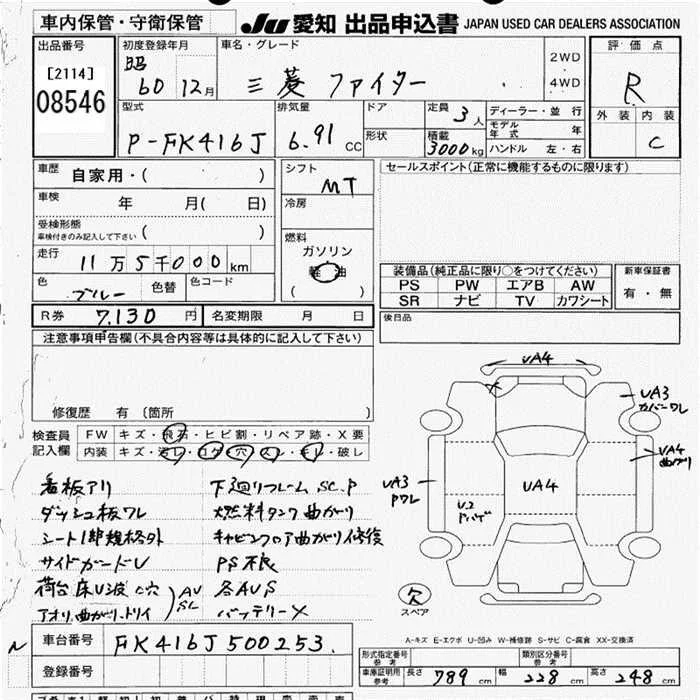 車内保管・守衛保管
JU 愛知 出品申込書 JAPAN USED CAR DEALERS ASSOCIATION
出品番号
[2114]
08546
初度登録年月
昭
60 12月
車名・グレード
三菱 ファイター
2WD
4WD
評価点
R
外装 内装
C
型式
P-FK416J
排気量
6.91 CC
ドア
形状
定員 3人
積載
3000kg
ディーラー・並行
モデル年式 年
ハンドル 左・右
車歴
自家用・( )
車検
年 月( 日)
受検形態
車検付きのみ記入して下さい ( )
走行
11万5千000km
色
ブルー
色替
色コード
シフト
MT
冷房
燃料
ガソリン
軽油
( )
セールスポイント(正常に機能するものに限ります)
装備品(純正品に限り○をつけてください)
PS PW エアB AW
SR ナビ TV カワシート
新車保証書
有・無
後日品
R券 7,130 円
名変期限 月 日
注意事項申告欄(不具合内容等は具体的に記入して下さい)
修復歴 有(箇所 )
検査員
記入欄
FW キズ・飛石・ヒビ割・リペア跡・X要
内装 キズ・汚レ・コゲ・穴・スレ・キレ・破レ
看板アリ
ダッシュ板ワレ
シート1脚規格外
サイドガードU
荷台床U波 C穴
アオリ曲がり.トリイ
AU
SC
下廻リフレーム SC.P
燃料タンク曲がり
キャビンフロア曲がり修復
PS不良
各AUS
バッテリー×
UA4
UA3
カバーワレ
UA4
曲がり
UA3
Pワレ
UA4
U.2
欠
スペア
A-キズ E-エクボ U-凹み W-補修跡 S-サビ C-腐食 XX-交換済
車台番号 FK416J500253.
登録番号
形式指定番号
参考
類別区分番号
参考
車庫証明用
参考
長さ 789 cm
幅 228 cm
高さ 248 cm